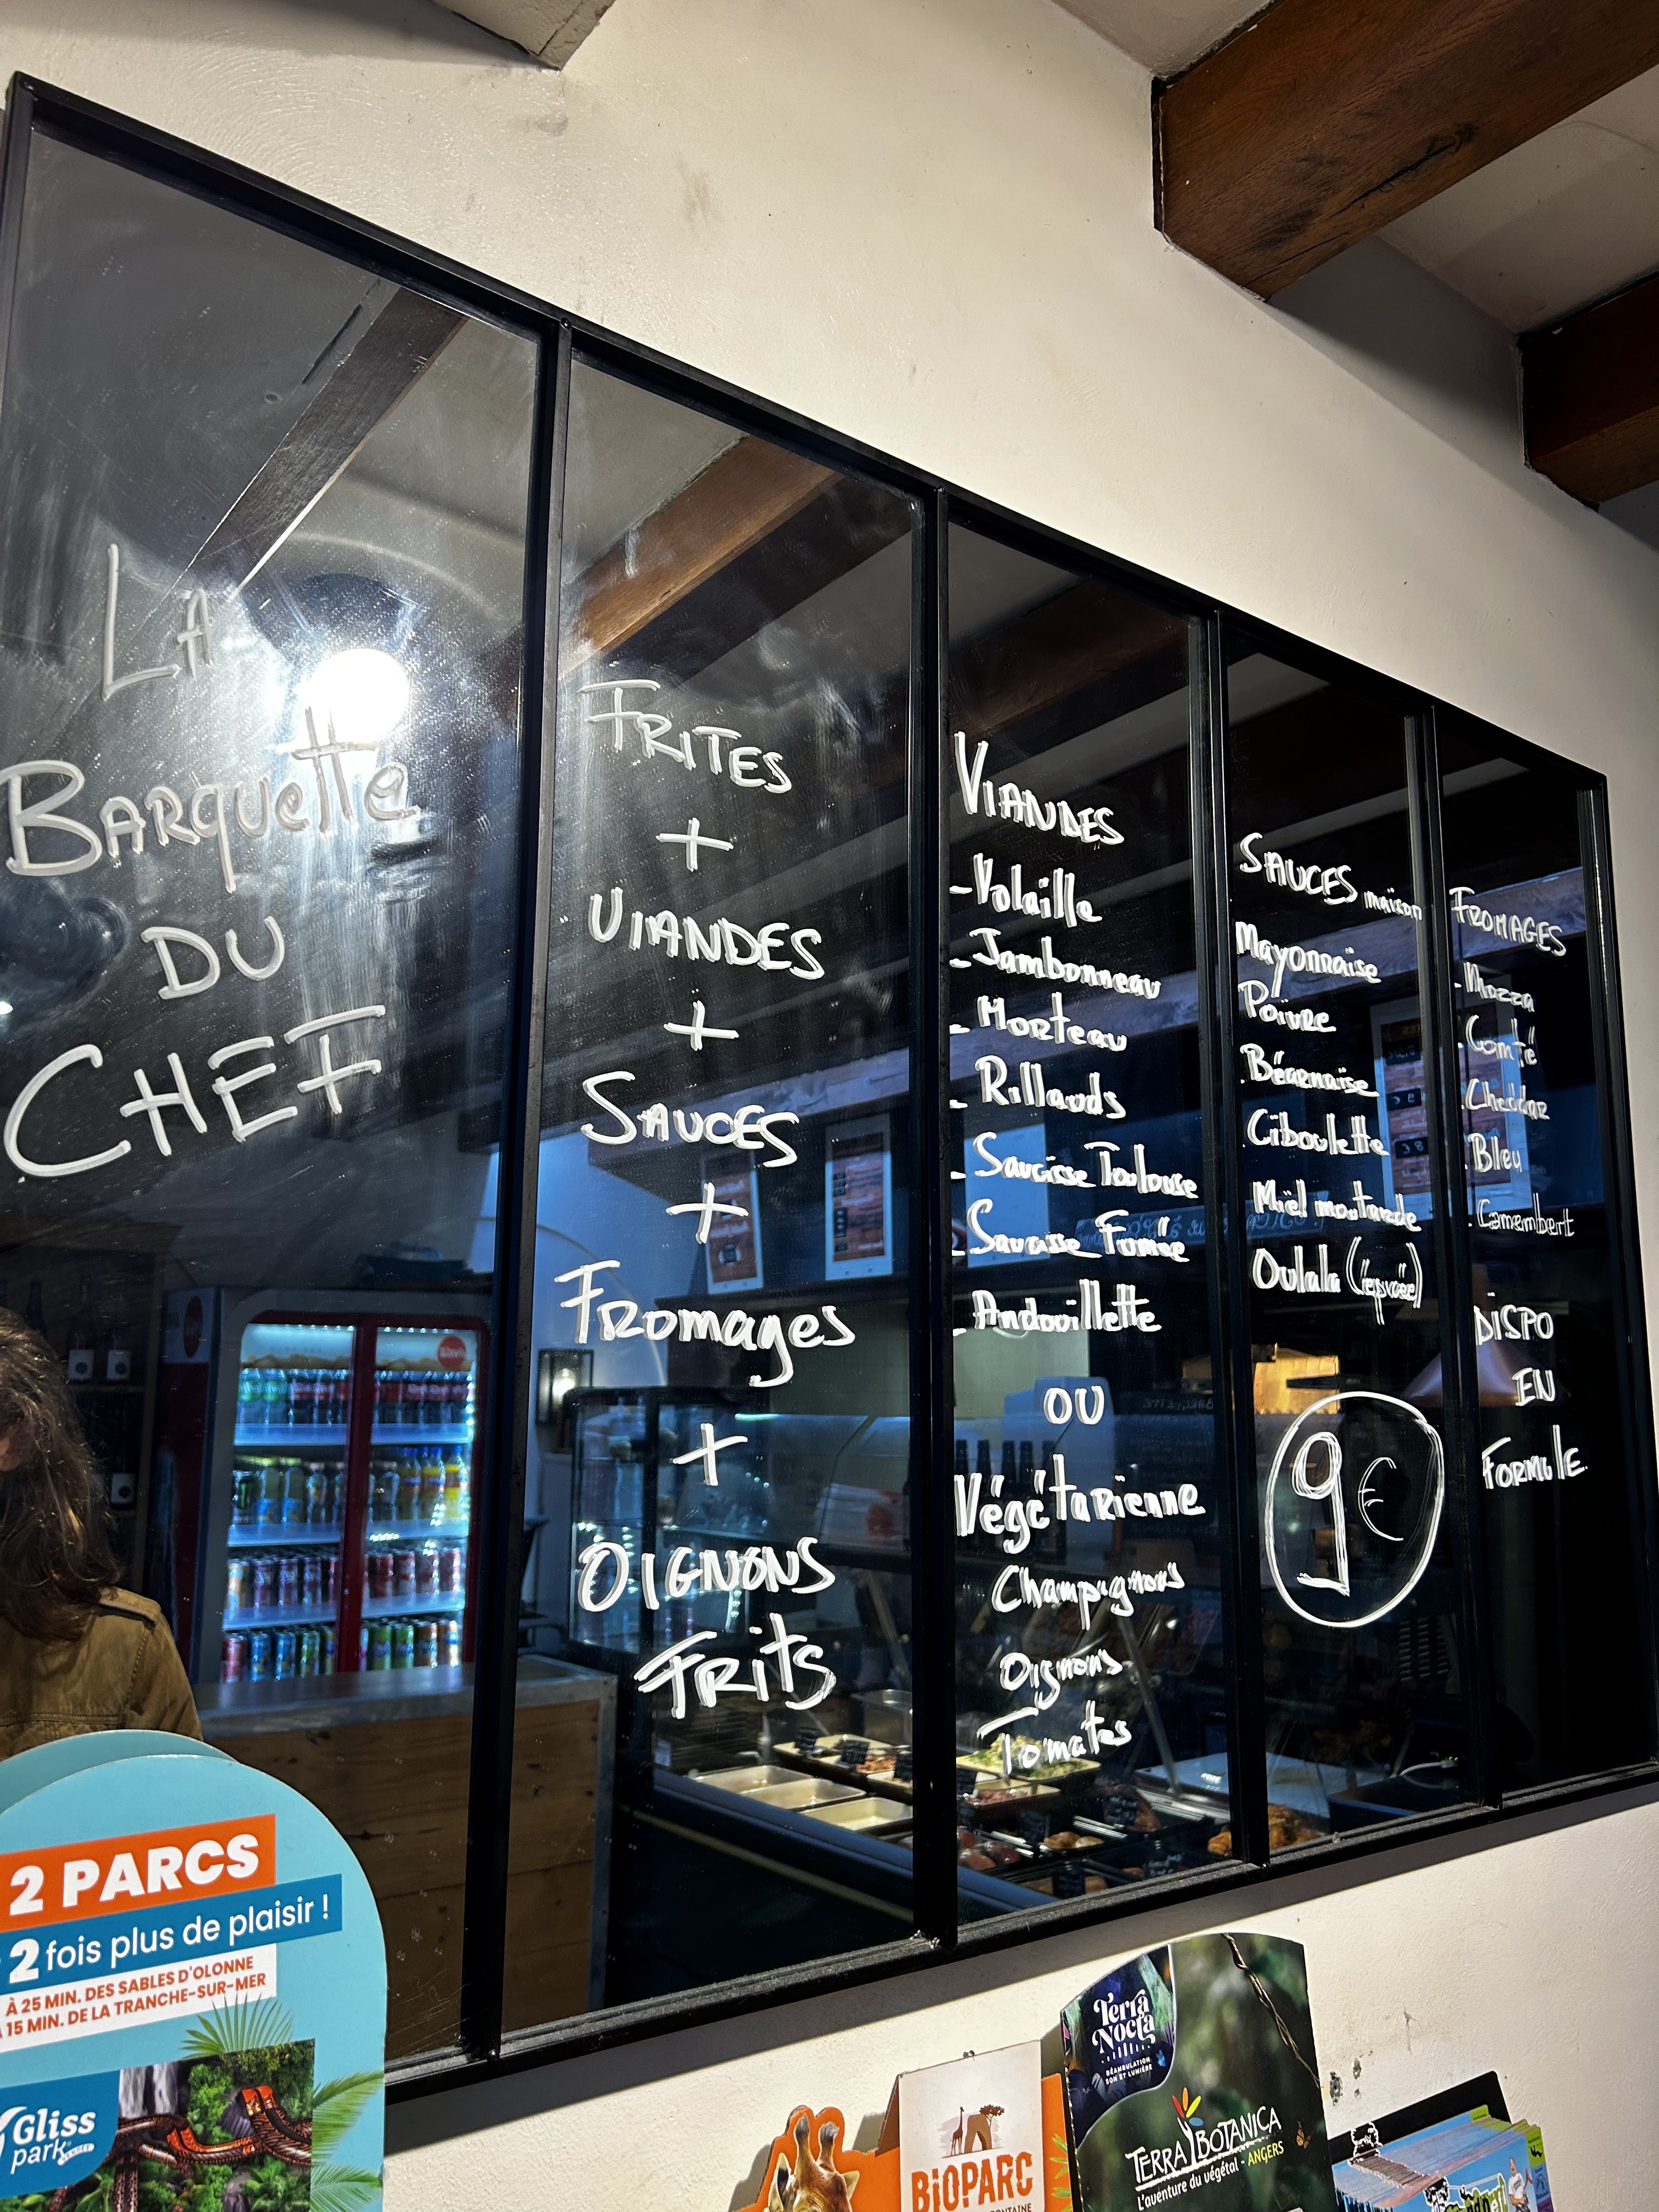 LA
BARQUETTE
DU
CHEF
FRITES
+
VIANDES
+
SAUCES
+
Fromages
+
OIGNONS
FRITS
VIANDES
- Volaille
- Jambonneau
- Morteau
- Rillauds
- Saucisse Toulouse
- Saucisse Fumée
- Andouillette
OU
Végétarienne
Champignons
Oignons
Tomates
SAUCES maison
Mayonnaise
Poivre
. Béarnaise
. Ciboulette
Miel moutarde
Oulala (épicée)
9€
FROMAGES
- Mozza
. Comté
. Cheddar
. Bleu
. Camembert
DISPO
EN
FORMULE
2 PARCS
2 fois plus de plaisir !
À 25 MIN. DES SABLES D'OLONNE
À 15 MIN. DE LA TRANCHE-SUR-MER
Gliss
park
BIOPARC
Terra
Nocta
DÉAMBULATION
SON ET LUMIÈRE
TERRA BOTANICA
L'aventure du végétal - ANGERS